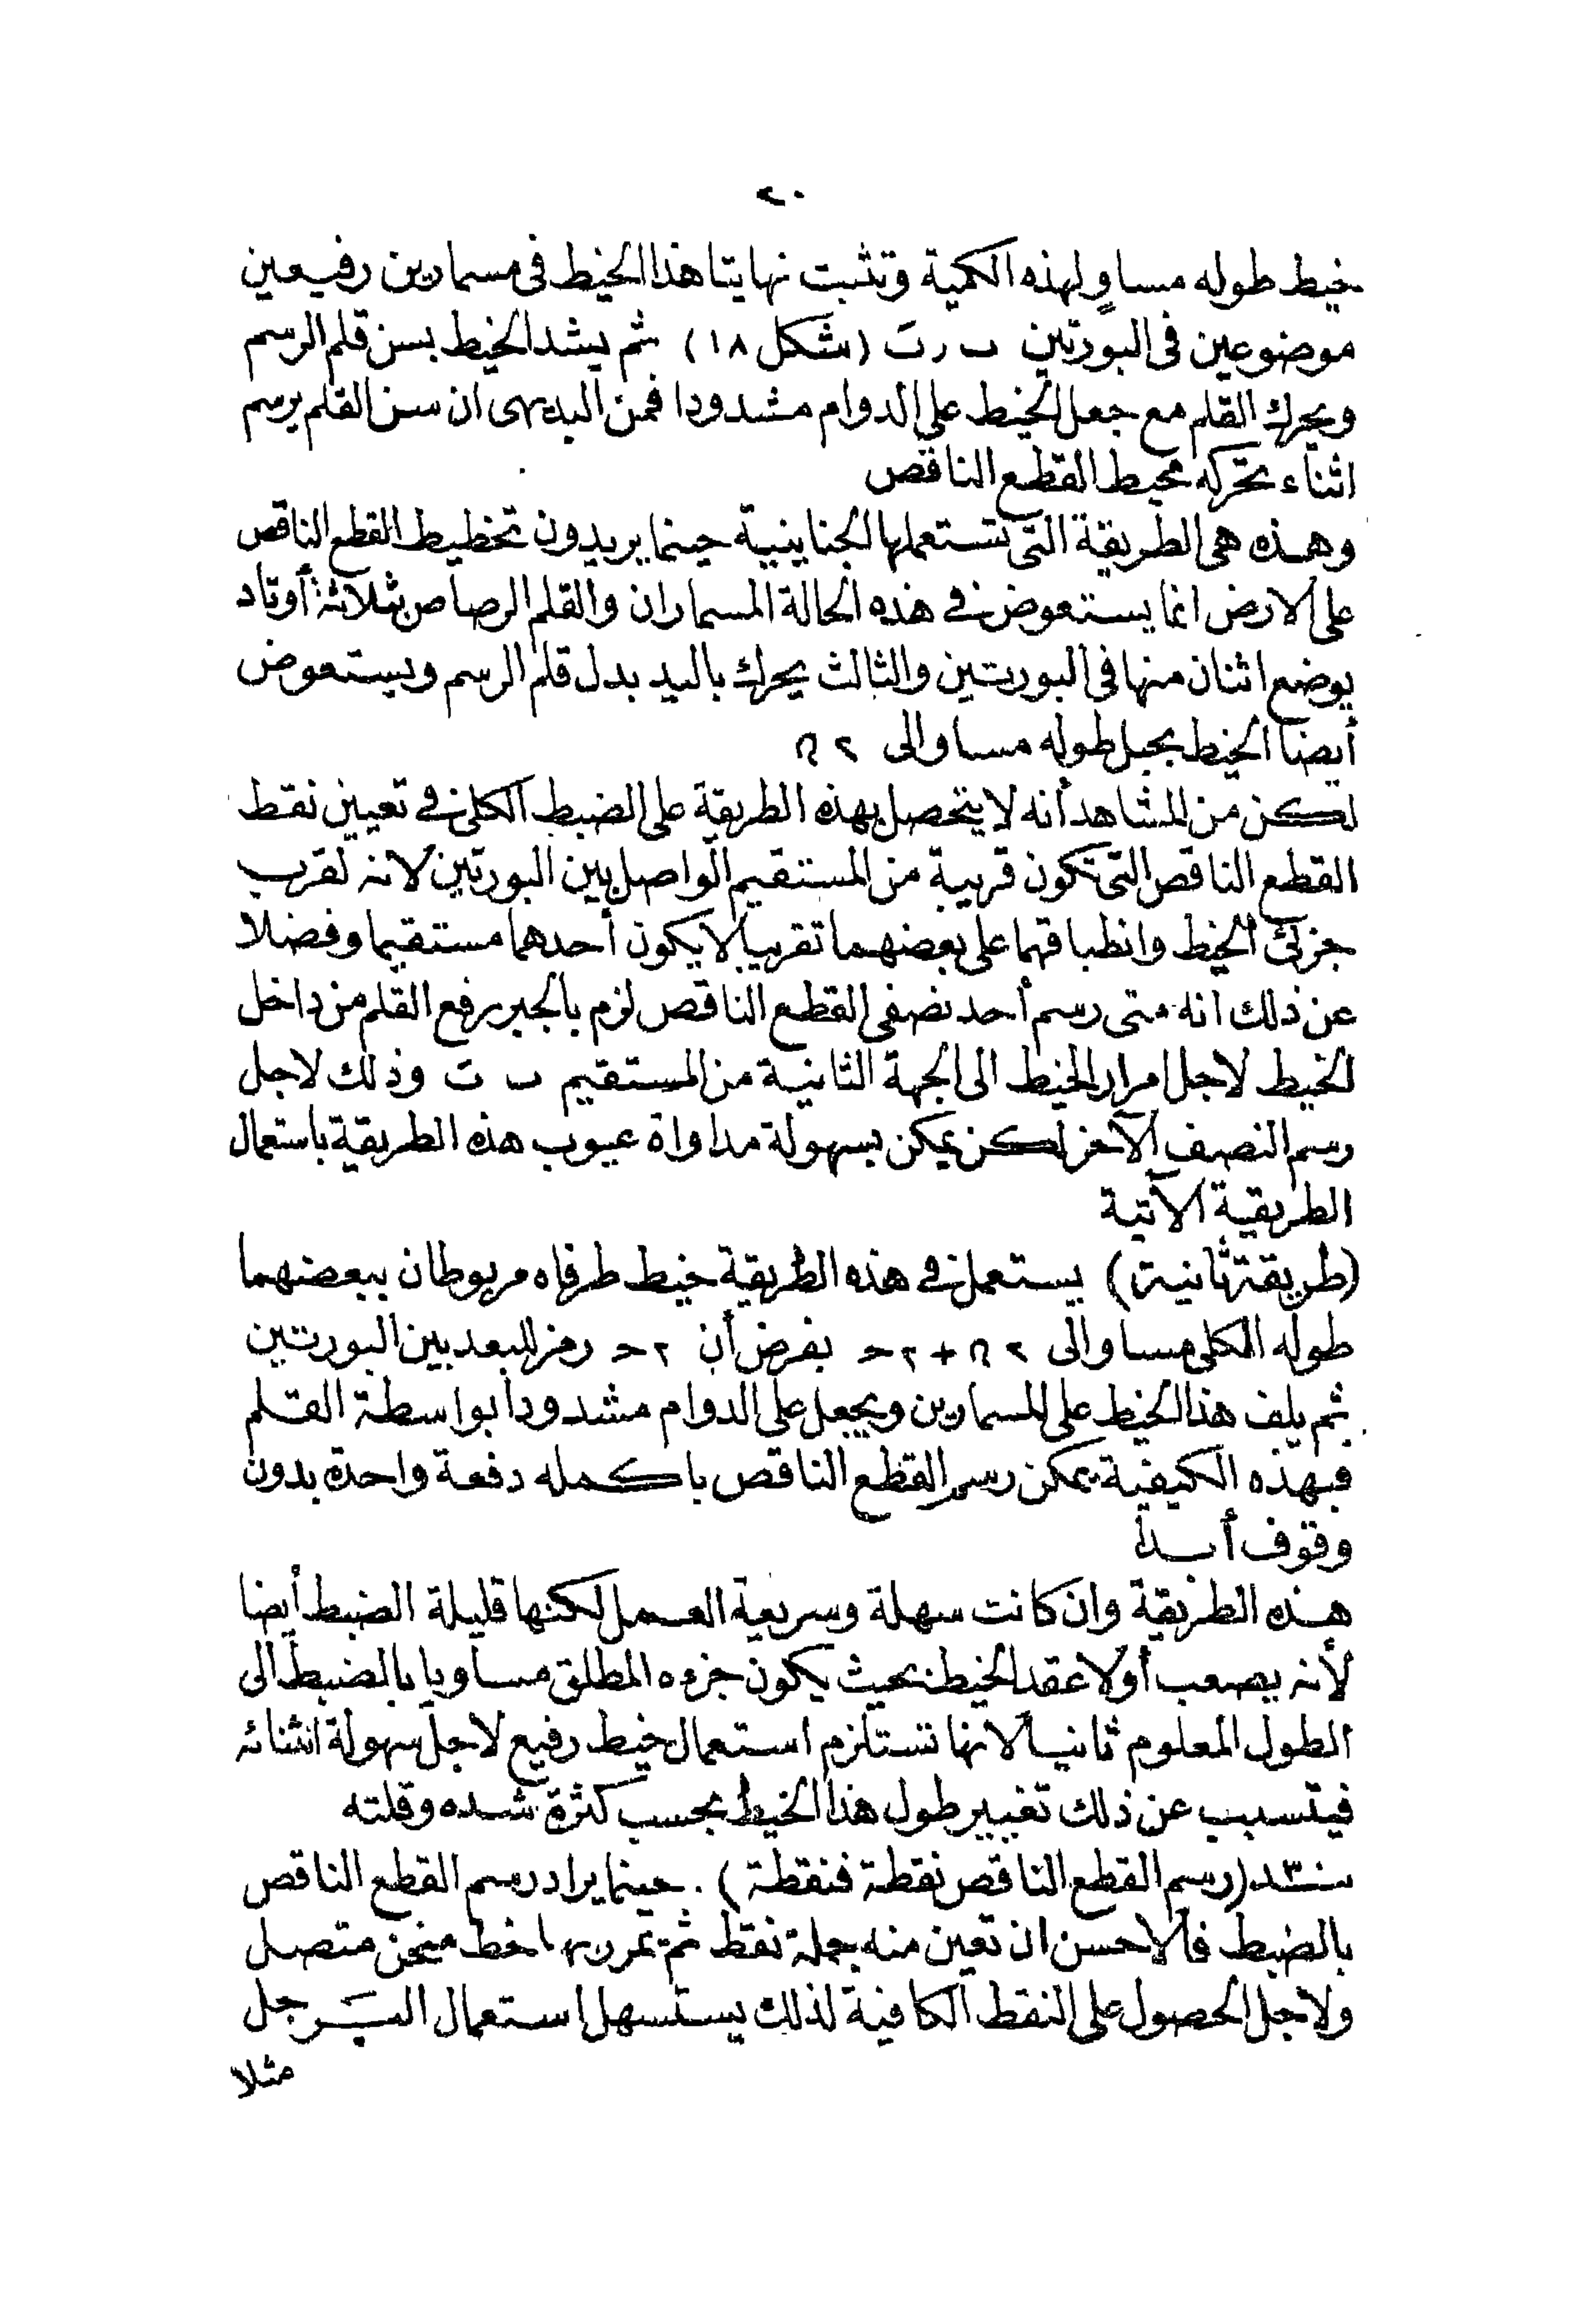 ٢٠
خيط طوله مساوٍ لهذه الكمية وتثبت نهايتا هذا الخيط فى مسمارين رفيعين
موضوعين فى البورتين ٮ ر ٮَ (شكل ١٨) ثم يشد الخيط بسن قلم الرسم
ويحرك القلم مع جعل الخيط على الدوام مشدودا فمن البديهى ان سن القلم يرسم
اثناء تحركه محيط القطع الناقص
وهذه هى الطريقة التى تستعملها الجناينية حينما يريدون تخطيط القطع الناقص
على الارض انما يستعوض فى هذه الحالة المسماران والقلم الرصاص بثلاثة أوتاد
يوضع اثنان منها فى البورتين والثالث يحرك باليد بدل قلم الرسم ويستعوض
أيضا الخيط بحبل طوله مساو الى ٢
لكن من المشاهد أنه لا يتحصل بهذه الطريقة على الضبط الكلى فى تعيين نقط
القطع الناقص التى تكون قريبة من المستقيم الواصل بين البورتين لانه لقرب
جزئى الخيط وانطباقهما على بعضهما تقريبا لا يكون أحدهما مستقيما وفضلا
عن ذلك أنه متى رسم أحد نصفى القطع الناقص لزم بالجبر رفع القلم من داخل
الخيط لاجل امرار الخيط الى الجهة الثانية من المستقيم ٮ ٮَ وذلك لاجل
رسم النصف الآخر لكن يمكن بسهولة مداواة عيوب هذه الطريقة باستعمال
الطريقة الآتية
(طريقة ثانية) يستعمل فى هذه الطريقة خيط طرفاه مربوطان ببعضهما
طوله الكلى مساو الى ٢ + ٢ حـ بفرض أن ٢ حـ رمز للبعد بين البورتين
ثم يلف هذا الخيط على المسمارين ويجعل على الدوام مشدودا بواسطة القلم
فبهذه الكيفية يمكن رسم القطع الناقص باكمله دفعة واحدة بدون
وقوف أبدا
هذه الطريقة وان كانت سهلة وسريعة العمل لكنها قليلة الضبط أيضا
لأنه يصعب أولا عقد الخيط بحيث يكون جزءه المطلق مساويا بالضبط الى
الطول المعلوم ثانيا لانها تستلزم استعمال خيط رفيع لاجل سهولة انثنائه
فيتسبب عن ذلك تغيير طول هذا الخيط بحسب كثرة شده وقلته
(رسم القطع الناقص نقطة فنقطة) . حينما يراد رسم القطع الناقص
بالضبط فالاحسن ان تعين منه جملة نقط ثم تمرر بها خط منحن متصل
ولاجل الحصول على النقط الكافية لذلك يستسهل استعمال البرجل
مثلا